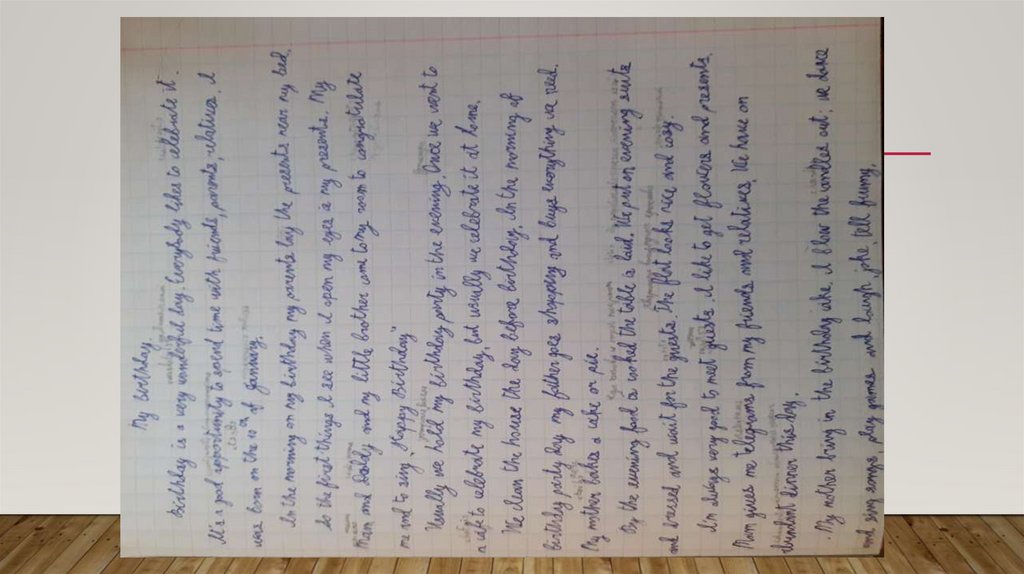 My birthday
Birthday is a very wonderful day. Everybody likes to celebrate it.
It's a good opportunity to spend time with friends, parents, relatives. I
was born on the 10 of January.
In the morning on my birthday my parents lay the presents near my bed.
So the first things I see when I open my eyes is my presents. My
Mam and Daddy and my little brother come to my room to congratulate
me and to sing "Happy Birthday"
Usually we hold my birthday party in the evening. Once we went to
a cafe to celebrate my birthday, but usually we celebrate it at home.
We clean the house the day before birthday. In the morning of
birthday party day my father goes shopping and buys everything we need.
My mother bakes a cake or pie.
By the evening food is cooked the table is laid. We put on evening suits
and dresses and wait for the guests. The flat looks nice and cosy.
I'm always very good to meet guests. I like to get flowers and presents.
Mam gives me telegrams from my friends and relatives. We have an
abundant dinner this day.
My mother bring in the birthday cake. I blow the candles out, we dance
and sing songs, play games and laugh, joke, tell funny.